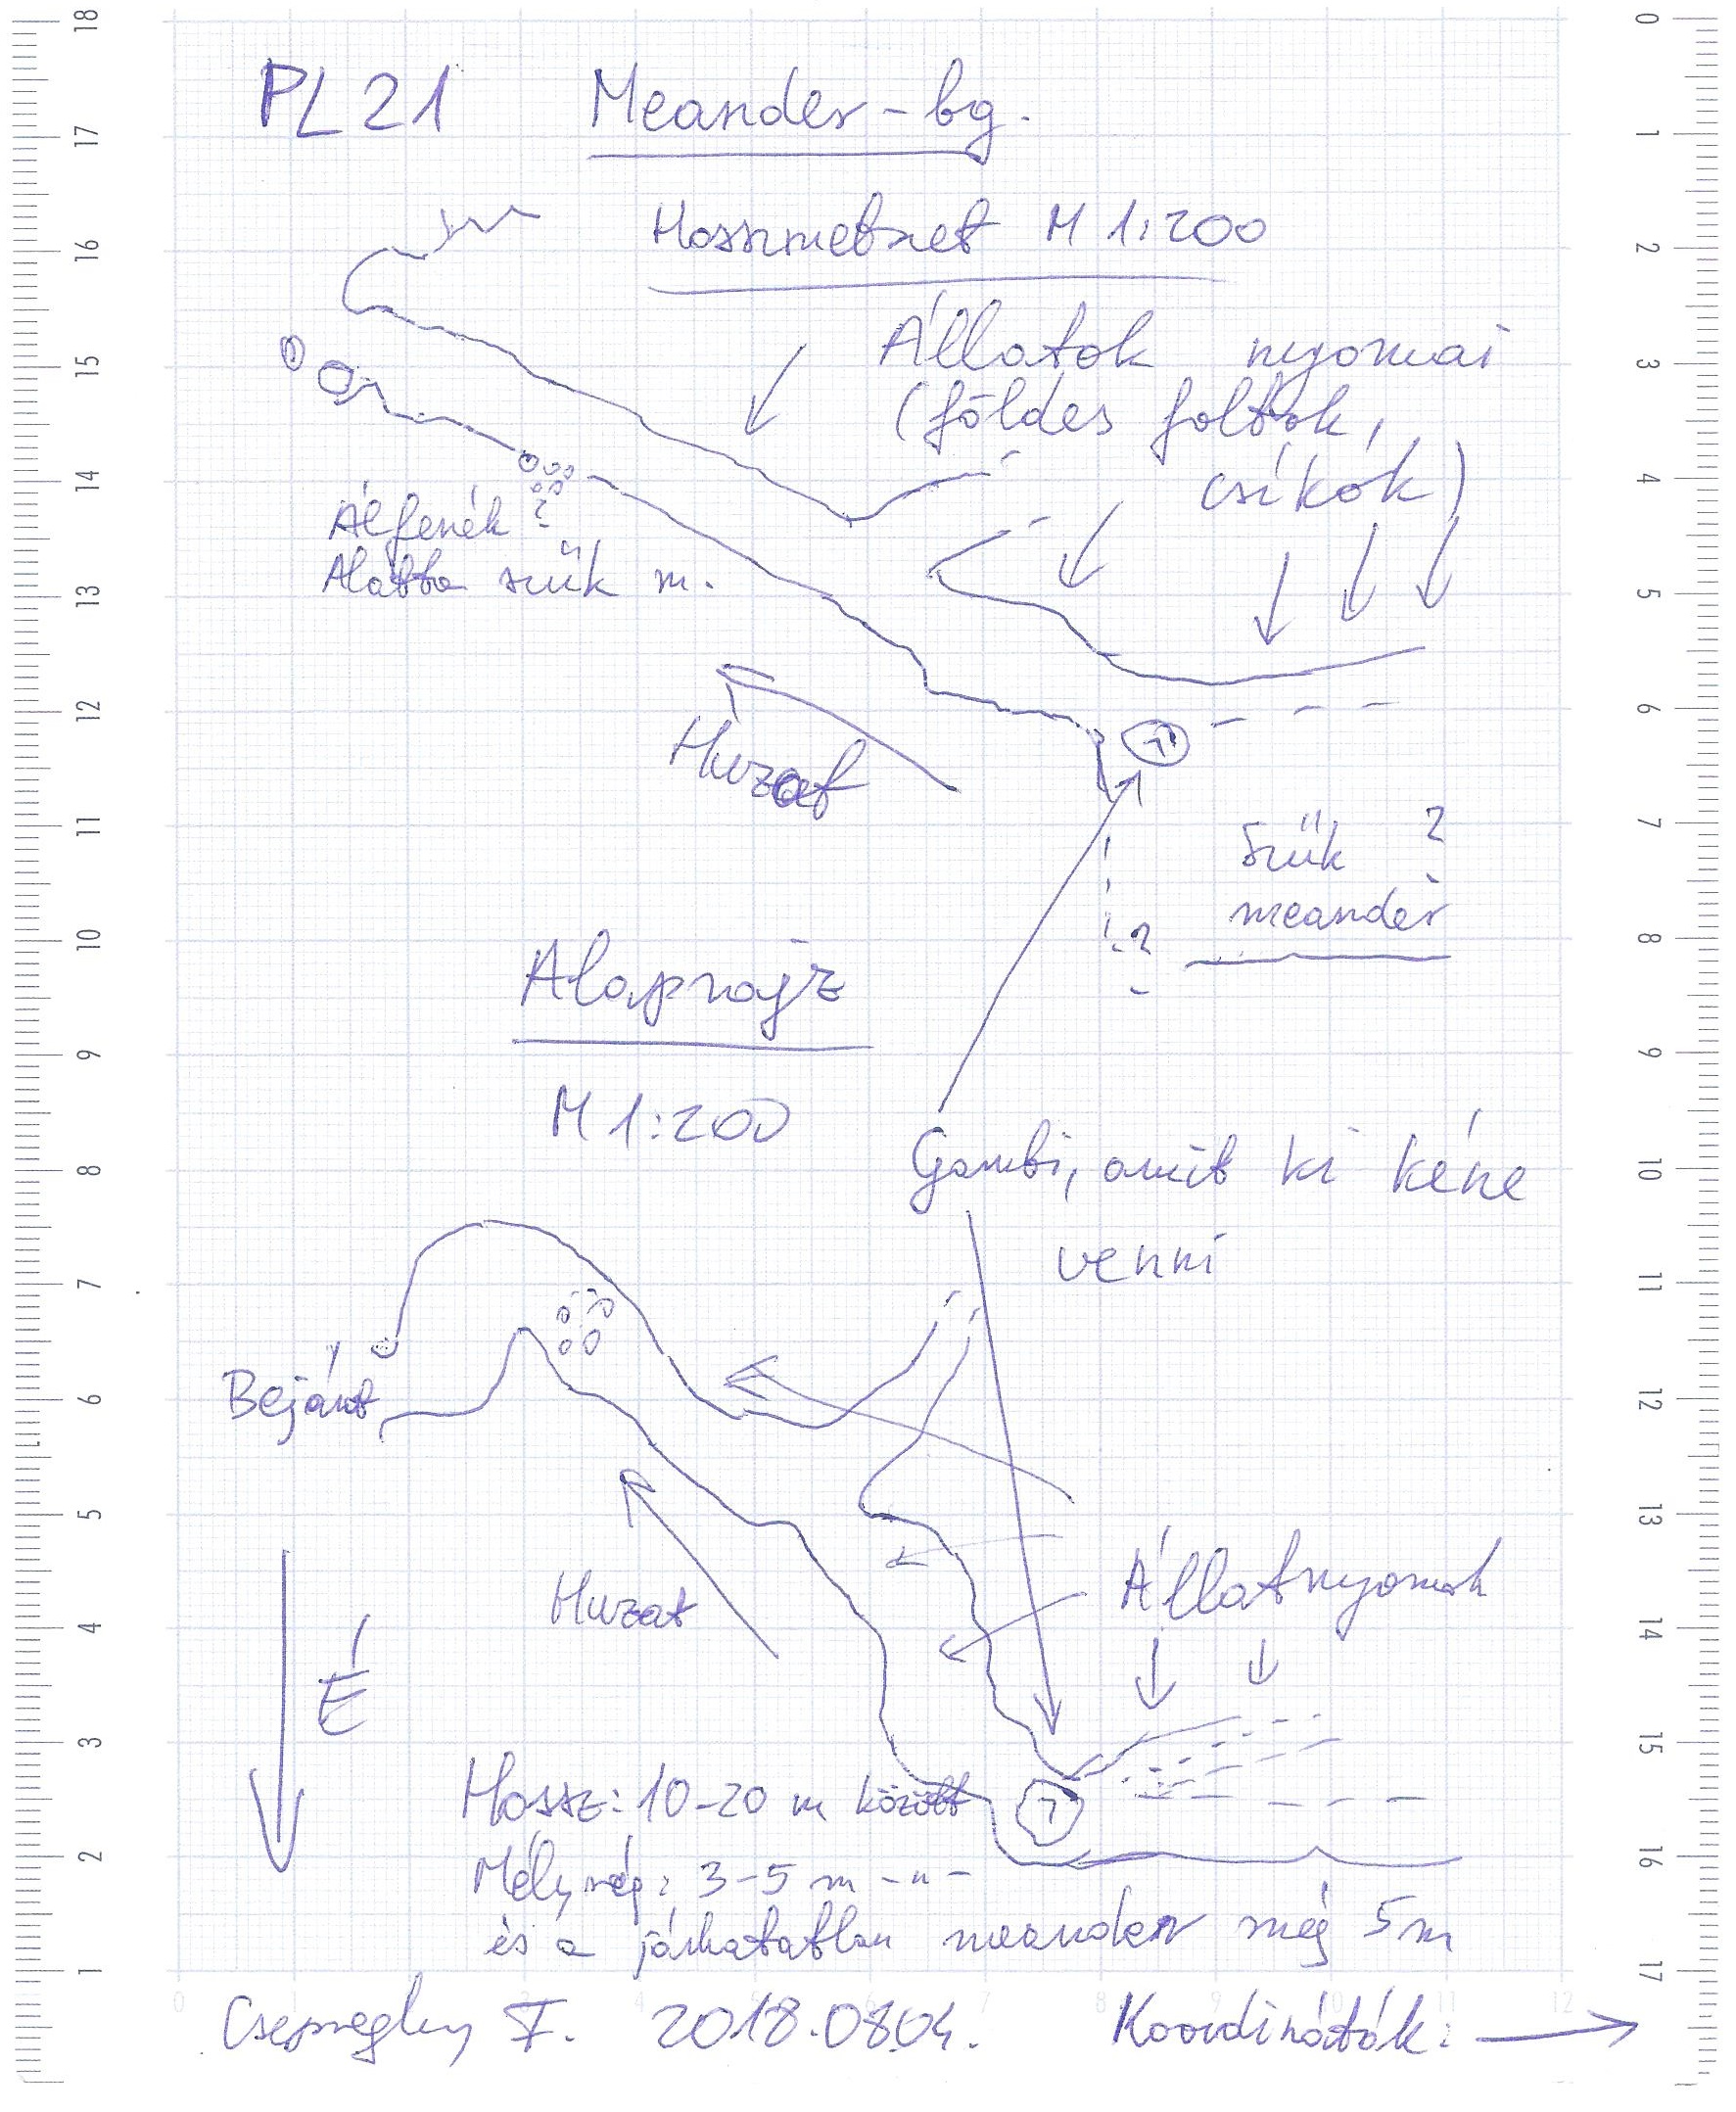 PL21 Meander-bg.
Hosszmetszet M 1:200
Állatok nyomai
(földes foltok,
csíkok)
Álfenék ?
Alatta szűk m.
Huzat
Szűk ?
meander
?
Alaprajz
M 1:200
Gambi, amit ki kéne
venni
Bejárat
Huzat
Állatnyomok
É
Hossz: 10-20 m között
Mélység: 3-5 m -"-
és a járhatatlan meander még 5m
Csepreghy F. 2018.08.04. Koordináták:
18 17 16 15 14 13 12 11 10 9 8 7 6 5 4 3 2 1
0 1 2 3 4 5 6 7 8 9 10 11 12 13 14 15 16 17